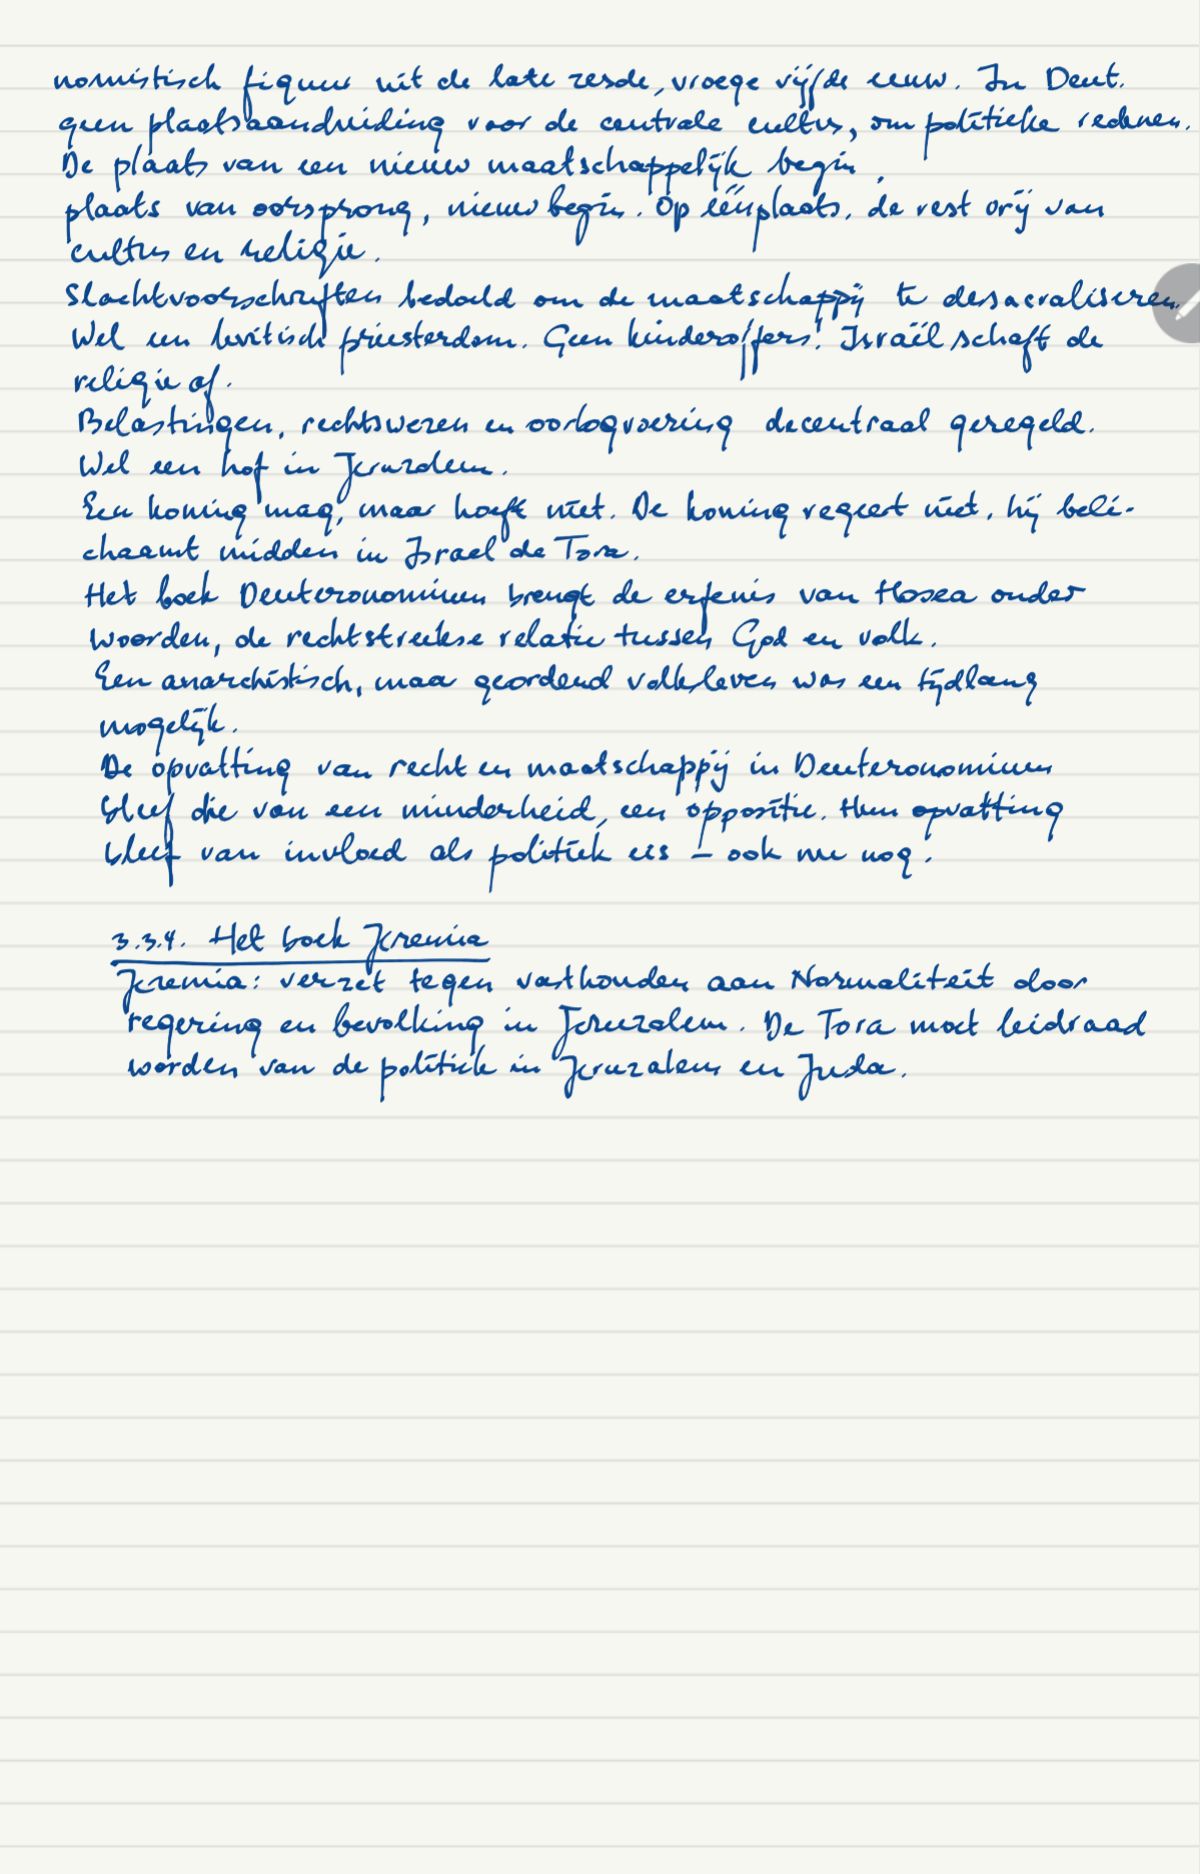 nomistisch figuur uit de late zesde, vroege vijfde eeuw. In Deut.
geen plaatsaanduiding voor de centrale cultus, om politieke redenen.
De plaats van een nieuw maatschappelijk begin,
plaats van oorsprong, nieuw begin. Op één plaats, de rest vrij van
cultus en religie.
Slachtvoorschriften bedoeld om de maatschappij te desacraliseren.
Wel een levitisch priesterdom. Geen kinderoffers! Israël schaft de
religie af.
Belastingen, rechtswezen en oorlogvoering decentraal geregeld.
Wel een hof in Jeruzalem.
Een koning mag, maar hoeft niet. De koning regeert niet, hij beli-
chaamt midden in Israel de Tora.
Het boek Deuteronomium brengt de erfenis van Hosea onder
woorden, de rechtstreekse relatie tussen God en volk.
Een anarchistisch, maar geordend volksleven was een tijdlang
mogelijk.
De opvatting van recht en maatschappij in Deuteronomium
bleef die van een minderheid, een oppositie. Hun opvatting
bleef van invloed als politiek eis – ook nu nog.
3.3.4. Het boek Jeremia
Jeremia: verzet tegen vasthouden aan Normaliteit door
regering en bevolking in Jeruzalem. De Tora moet leidraad
worden van de politiek in Jeruzalem en Juda.